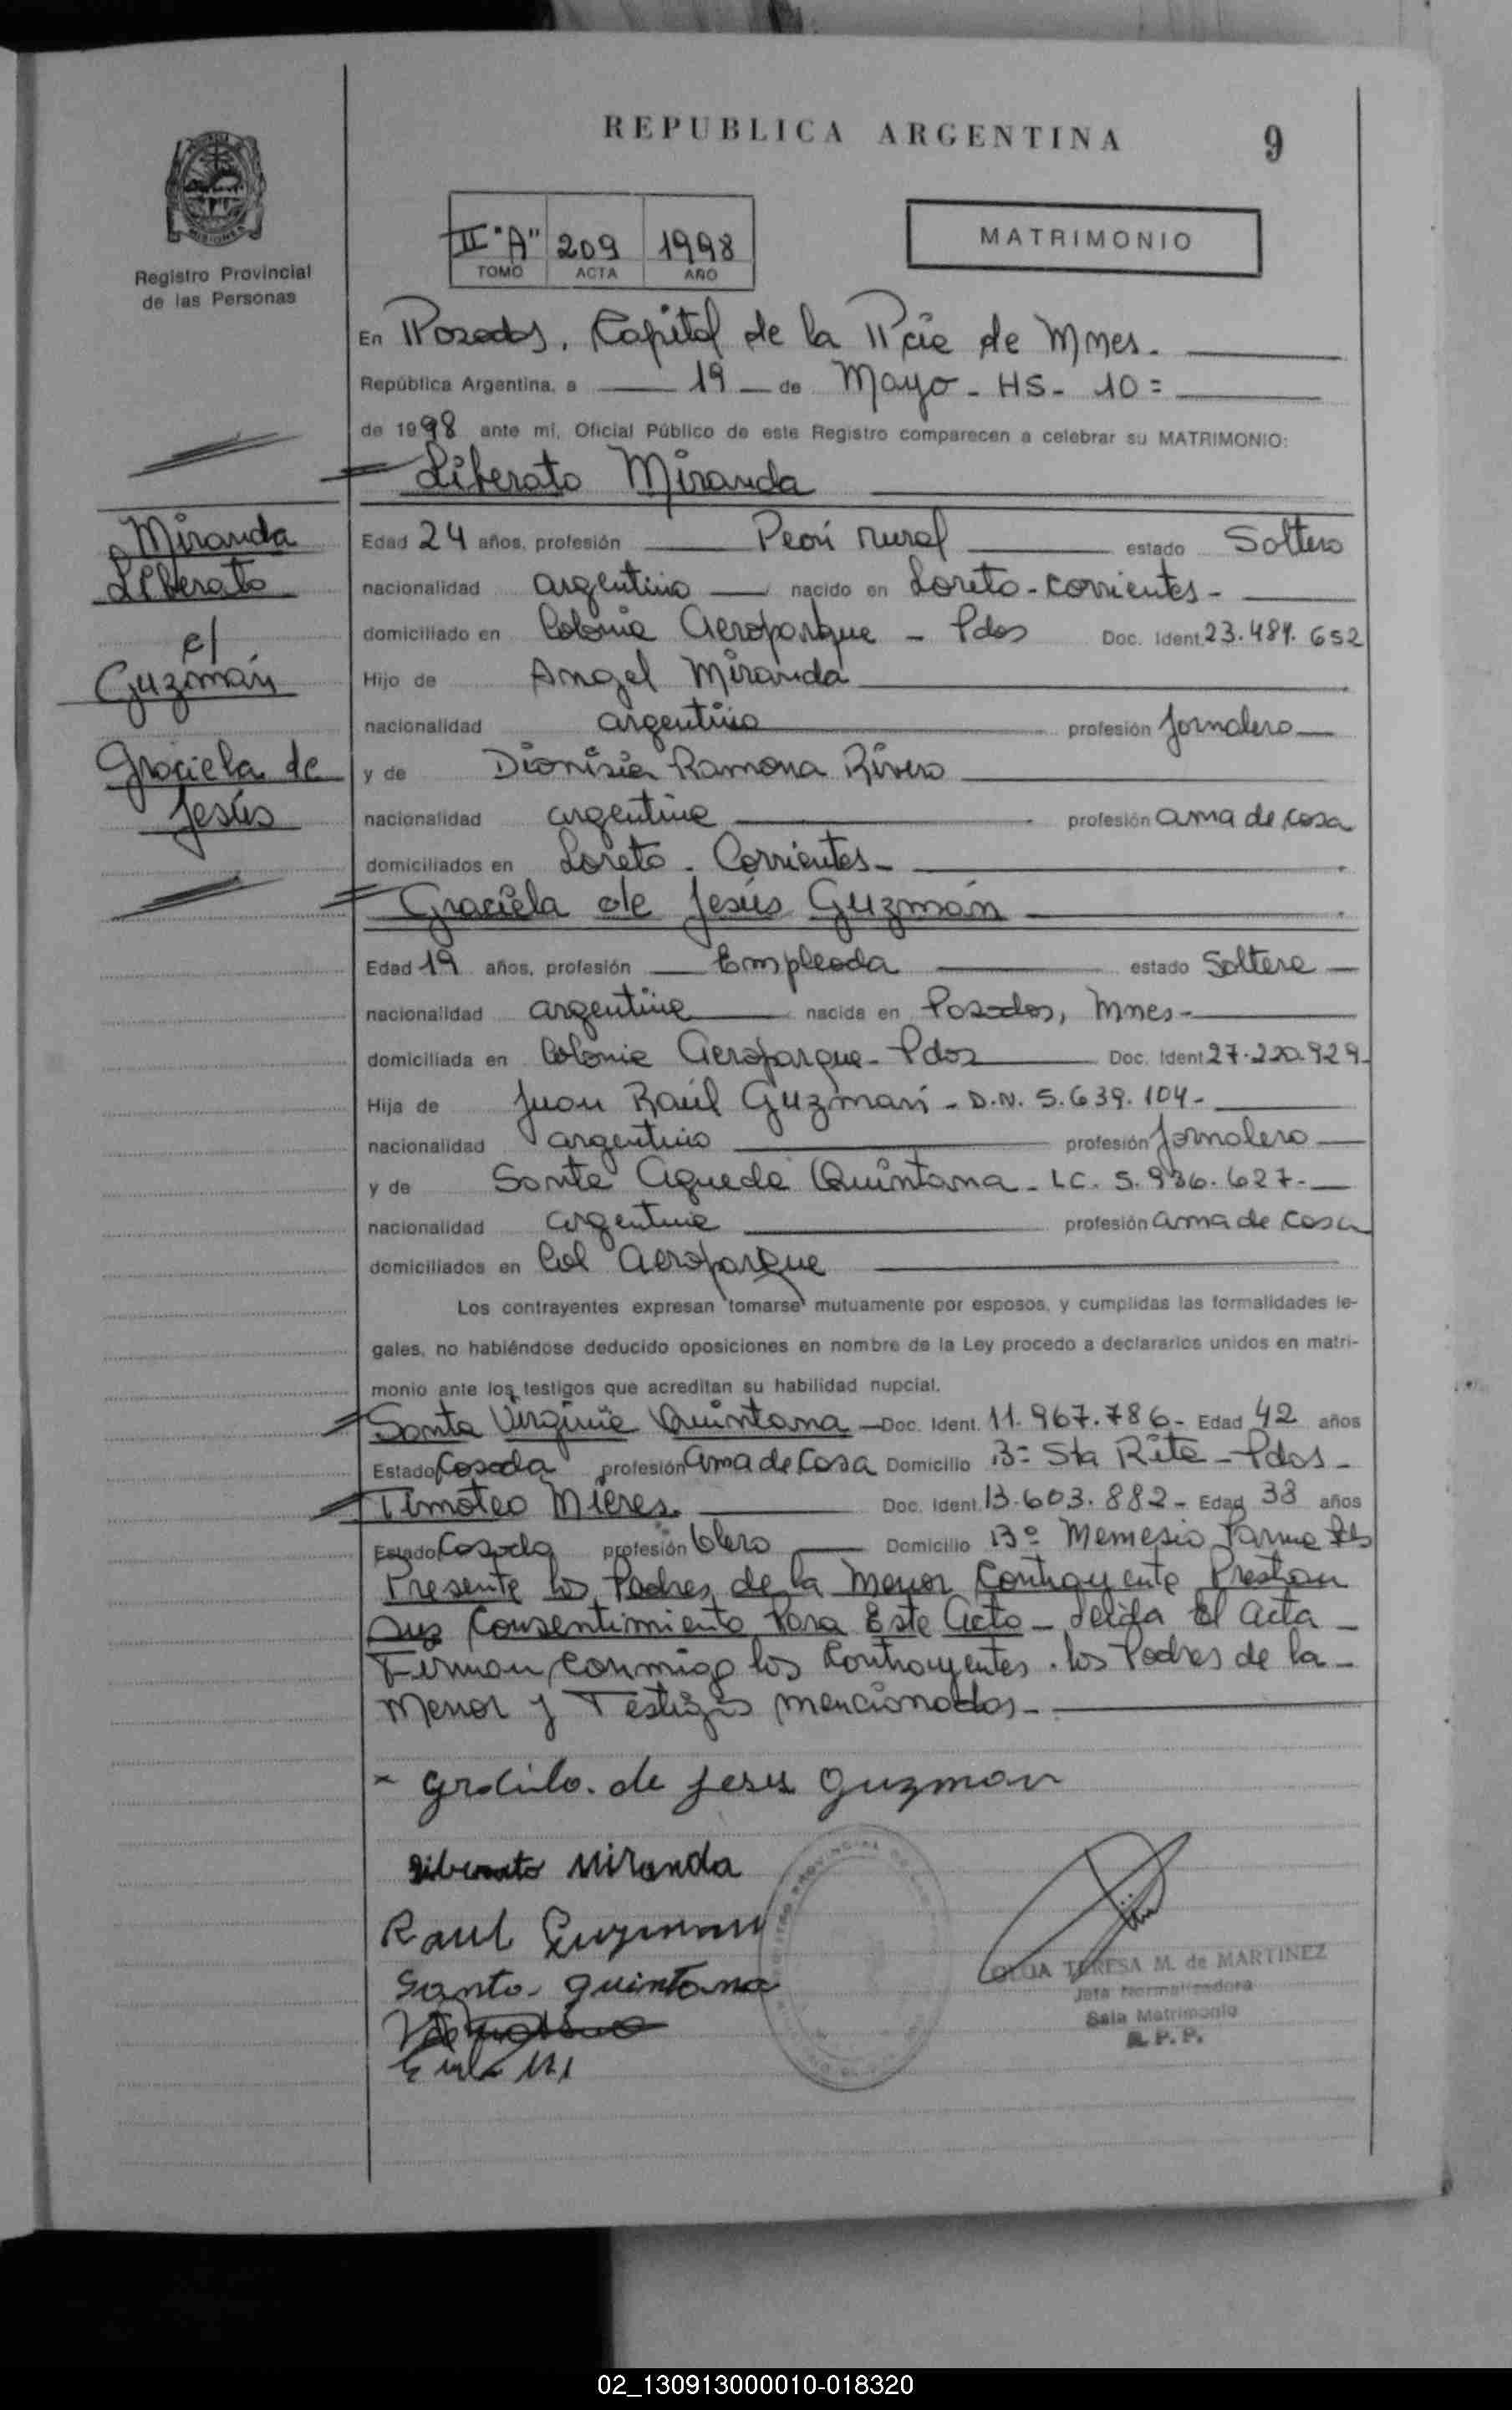 REPUBLICA ARGENTINA
9
MISIONES
Registro Provincial
de las Personas
II "A" 209 1998
TOMO ACTA AÑO
MATRIMONIO
En Posadas, Capital de la Pcia de Mnes.
República Argentina, a 19 de Mayo - HS - 10 =
de 1998 ante mi, Oficial Público de este Registro comparecen a celebrar su MATRIMONIO:
Liberato Miranda
Miranda
Liberato
c/
Guzmán
Graciela de
Jesús
Edad 24 años, profesión Peón rural estado Soltero
nacionalidad argentino nacido en Loreto - Corrientes -
domiciliado en Colonia Aeroparque - Pdas Doc. Ident. 23.489.652
Hijo de Angel Miranda
nacionalidad argentino profesión Jornalero
y de Dionisia Ramona Rivero
nacionalidad argentina profesión ama de casa
domiciliados en Loreto - Corrientes -
Graciela de Jesús Guzmán
Edad 19 años, profesión Empleada estado Soltera
nacionalidad argentina nacida en Posadas, Mnes -
domiciliada en Colonia Aeroparque - Pdas Doc. Ident 27.220.929 -
Hija de Juan Raúl Guzmán - D.N. 5.639.104 -
nacionalidad argentino profesión Jornalero
y de Santa Agueda Quintana - LC. 5.936.627 -
nacionalidad argentina profesión ama de casa
domiciliados en Col Aeroparque
Los contrayentes expresan tomarse mutuamente por esposos, y cumplidas las formalidades le-
gales, no habiéndose deducido oposiciones en nombre de la Ley procedo a declararlos unidos en matri-
monio ante los testigos que acreditan su habilidad nupcial.
Santa Virginia Quintana - Doc. Ident. 11.967.786 - Edad 42 años
Estado Casada profesión Ama de Casa Domicilio Bº Sta Rita - Pdas -
Timoteo Mieres. Doc. Ident. 13.603.882 - Edad 38 años
Estado Casado profesión Olero Domicilio Bº Memesio Parma
Presente los Padres de la Menor Contrayente Prestan
sus Consentimiento Para Este Acto - Leida El Acta -
Firman conmigo los Contrayentes. los Padres de la -
Menor y Testigos mencionados -
Graciela. de jesus Guzman
Liberato Miranda
Raul Guzman
Santa Quintana
OLGA TERESA M. de MARTINEZ
Jefa Normalizadora
Sala Matrimonio
R. P. P.
02_130913000010-018320